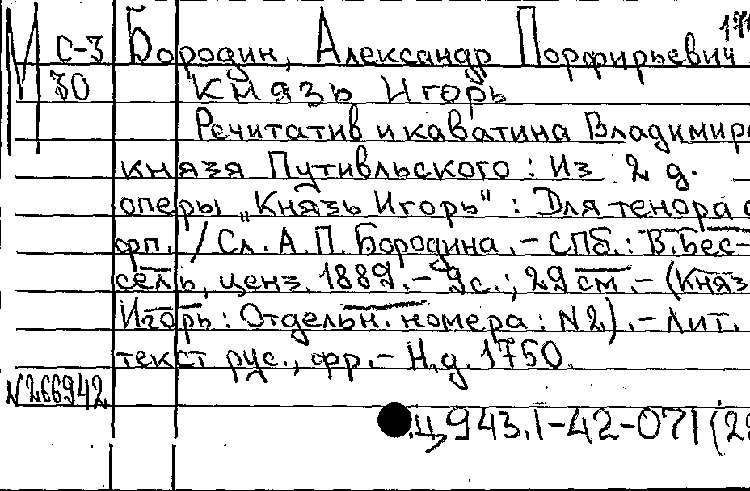 М С-3 Бородин, Александр Порфирьевич
30 Князь Игорь
Речитатив и каватина Владимира
князя Путивльского: Из 2 д.
оперы „Князь Игорь": Для тенора с
фп. / Сл. А. П. Бородина. – СПб.: В. Бес-
сель, ценз. 1889. – 9 с.; 29 см. – (Княз
Игорь: Отдельн. номера: N2). – Лит.
текст рус., фр. – Н. д. 1750.
N266942
Ц943.1-42-071(2